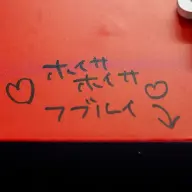 ホイサ
ホイサ
フブルイ